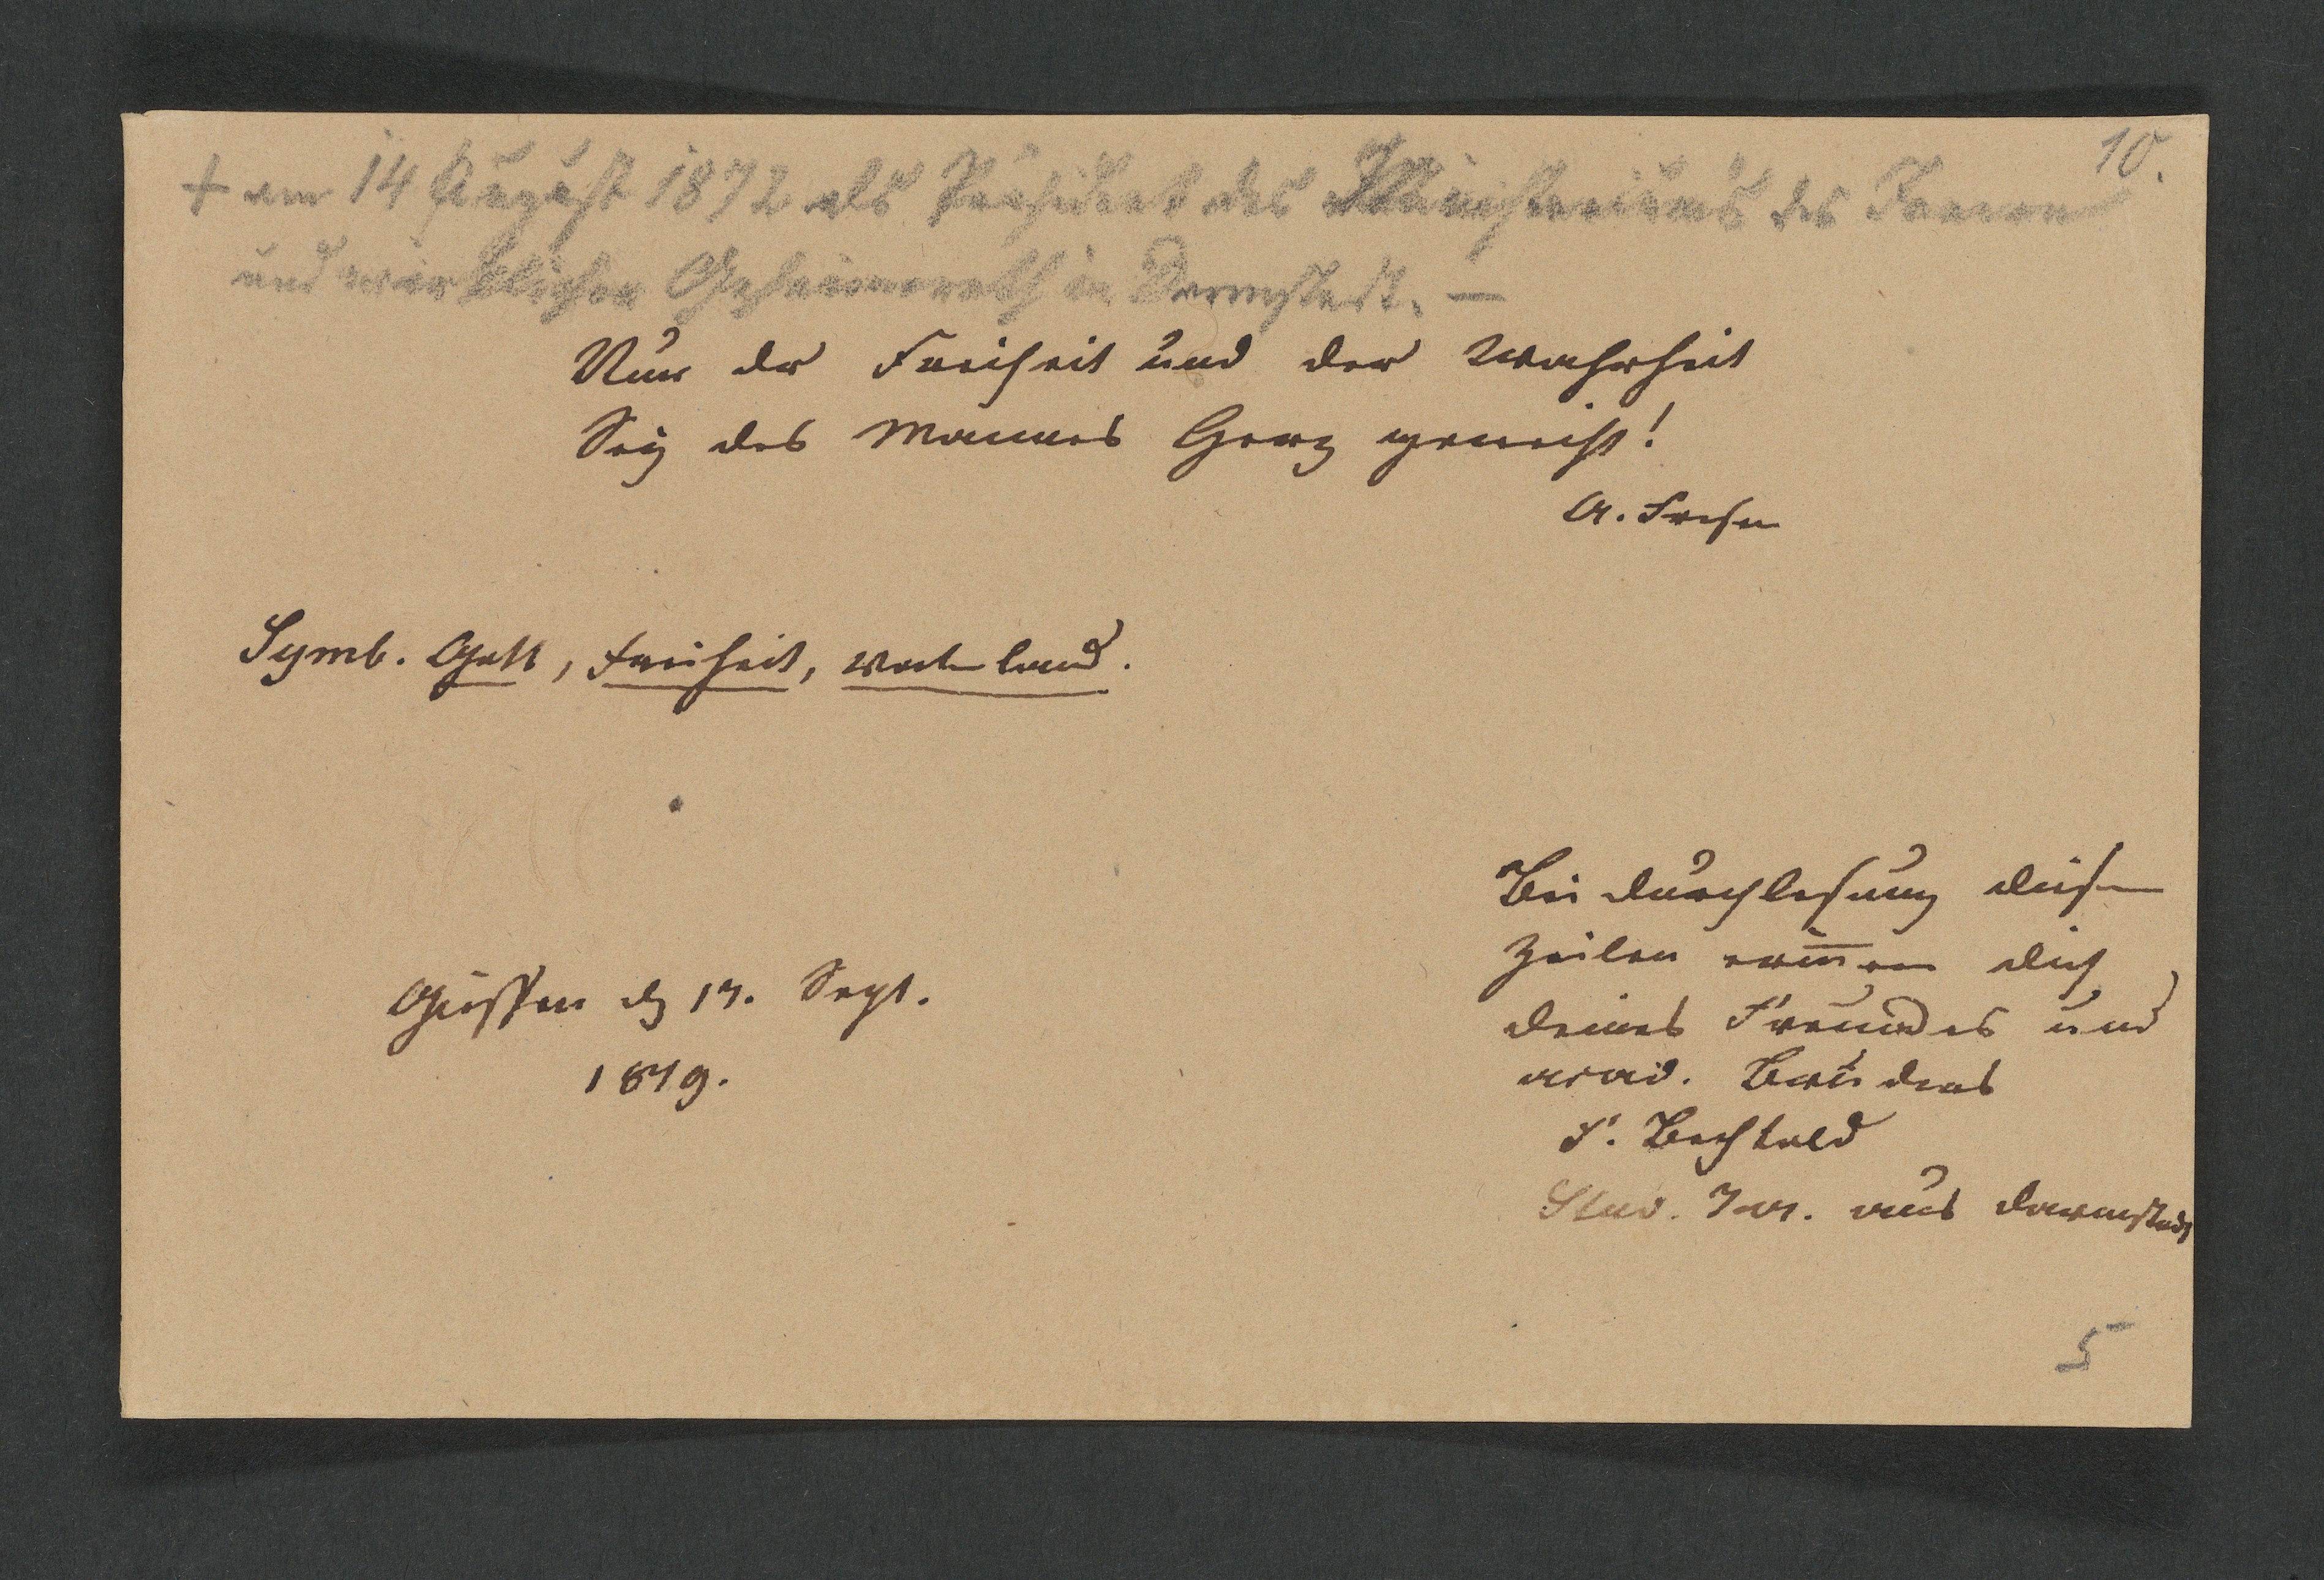 10.
+ am 14 August 1872 als Präsident des Ministeriums des Innern
und wirklicher Geheimerath in Darmstadt. —
Nur der Freiheit und der Wahrheit
Sey des Mannes Herz geweiht!
A.
Symb. Gott, Freiheit, Vaterland.
Bei Durchlesung dieser
Zeilen erin̅ere dich
Giessen d 17. Sept.
deines Freundes und
1819.
acad. Bruders
F. Bechtold
Stud. Jur. aus Darmstadt
5